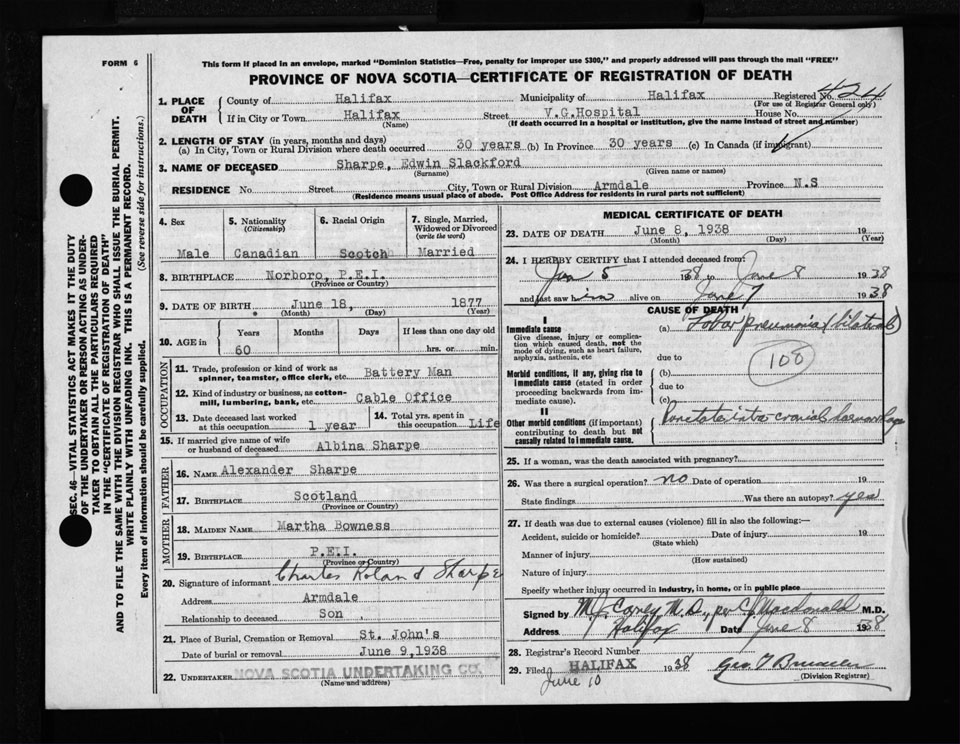 FORM 6
This form if placed in an envelope, marked "Dominion Statistics—Free, penalty for improper use $300," and properly addressed will pass through the mail "FREE"
PROVINCE OF NOVA SCOTIA—CERTIFICATE OF REGISTRATION OF DEATH
1. PLACE OF DEATH
County of Halifax Municipality of Halifax Registered No. 424
(For use of Registrar General only)
If in City or Town Halifax Street V.G.Hospital House No.
(Name) (If death occurred in a hospital or institution, give the name instead of street and number)
2. LENGTH OF STAY (in years, months and days)
(a) In City, Town or Rural Division where death occurred 30 years (b) In Province 30 years (c) In Canada (if immigrant)
3. NAME OF DECEASED Sharpe, Edwin Slackford
(Surname) (Given name or names)
RESIDENCE No Street City, Town or Rural Division Armdale Province N.S
(Residence means usual place of abode. Post Office Address for residents in rural parts not sufficient)
4. Sex
Male
5. Nationality
(Citizenship)
Canadian
6. Racial Origin
Scotch
7. Single, Married, Widowed or Divorced
(write the word)
Married
8. BIRTHPLACE Norboro, P.E.I.
(Province or Country)
9. DATE OF BIRTH June 18, 1877
(Month) (Day) (Year)
10. AGE in
Years Months Days If less than one day
60 hrs. or min.
OCCUPATION
11. Trade, profession or kind of work as
spinner, teamster, office clerk, etc. Battery Man
12. Kind of industry or business, as cotton-
mill, lumbering, bank, etc. Cable Office
13. Date deceased last worked
at this occupation 1 year
14. Total yrs. spent in
this occupation Life
15. If married give name of wife
or husband of deceased Albina Sharpe
FATHER
16. Name Alexander Sharpe
17. Birthplace Scotland
(Province or Country)
MOTHER
18. Maiden Name Martha Bowness
19. Birthplace P.E.I.
(Province or Country)
20. Signature of informant Charles Roland Sharpe
Address Armdale
Relationship to deceased Son
21. Place of Burial, Cremation or Removal St. John's
Date of burial or removal June 9,1938
22. Undertaker NOVA SCOTIA UNDERTAKING CO.
(Name and address)
MEDICAL CERTIFICATE OF DEATH
23. DATE OF DEATH June 8, 1938 19
(Month) (Day) (Year)
24. I HEREBY CERTIFY that I attended deceased from:
Jan 5 1938 to June 8 1938
and last saw him alive on June 7 1938
CAUSE OF DEATH
I
Immediate cause
Give disease, injury or complication which caused death, not the mode of dying, such as heart failure, asphyxia, asthenia, etc
(a) Lobar pneumonia (bilateral)
due to
108
Morbid conditions, if any, giving rise to immediate cause (stated in order proceeding backwards from immediate cause).
(b)
due to
(c)
II
Other morbid conditions (if important) contributing to death but not causally related to immediate cause.
Punctate intra cranial haemorrhage
25. If a woman, was the death associated with pregnancy?
26. Was there a surgical operation? no Date of operation 19
State findings Was there an autopsy? yes
27. If death was due to external causes (violence) fill in also the following:—
Accident, suicide or homicide? Date of injury 19
(State which)
Manner of injury
(How sustained)
Nature of injury
Specify whether injury occurred in industry, in home, or in public place
Signed by M. J. Carney M.D., per C. Macdonald M.D.
Address Halifax Date June 8 1938
28. Registrar's Record Number
29. Filed HALIFAX 1938
June 10
(Division Registrar)
SEC. 46—VITAL STATISTICS ACT MAKES IT THE DUTY
OF THE UNDERTAKER OR PERSON ACTING AS UNDER-
TAKER TO OBTAIN ALL THE PARTICULARS REQUIRED
IN THE "CERTIFICATE OF REGISTRATION OF DEATH"
AND TO FILE THE SAME WITH THE DIVISION REGISTRAR WHO SHALL ISSUE THE BURIAL PERMIT.
WRITE PLAINLY WITH UNFADING INK. THIS IS A PERMANENT RECORD.
Every item of information should be carefully supplied. (See reverse side for instructions.)